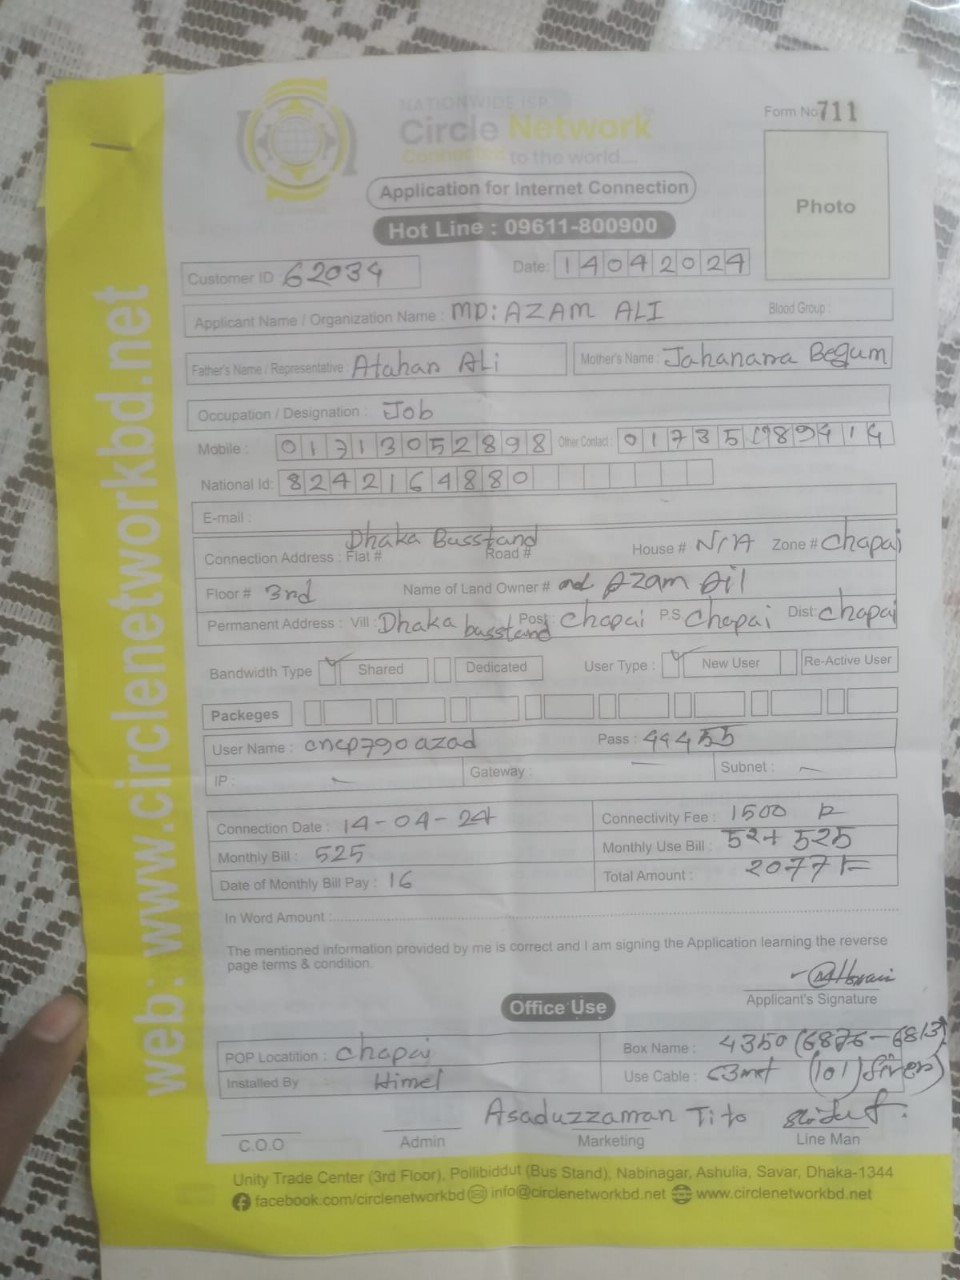 NATIONWIDE ISP
Form No 711
Circle Network
Connected to the world....
Application for Internet Connection
Photo
Hot Line : 09611-800900
Customer ID 62034 Date: 14042024
Applicant Name / Organization Name : MD: AZAM ALI Blood Group :
Father's Name / Representative : Atahar Ali Mother's Name : Jahanara Begum
Occupation / Designation : Job
Mobile : 01313052898 Other Contact :
National Id: 8242164880
E-mail :
Connection Address : Flat # Dhaka Busstand Road # House # N/A Zone # Chapai
Floor # 3rd Name of Land Owner # Azam
Permanent Address : Vill : Dhaka busstand Post: Chapai P.S. Chapai Dist: Chapai
Bandwidth Type Shared Dedicated User Type : New User Re-Active User
Packeges
User Name : cncp790azad Pass : 44455
IP : Gateway : Subnet :
Connection Date : 14-04-24 Connectivity Fee : 1500
Monthly Bill : 525 Monthly Use Bill : 52+ 525
Date of Monthly Bill Pay : 16 Total Amount : 2077
In Word Amount :
The mentioned information provided by me is correct and I am signing the Application learning the reverse
page terms & condition.
Applicant's Signature
Office Use
POP Locatition : Chapai Box Name : 4350 (6876-6813)
Installed By : Himel Use Cable : (101)
Asaduzzaman Tito
C.O.O Admin Marketing Line Man
Unity Trade Center (3rd Floor), Pollibiddut (Bus Stand), Nabinagar, Ashulia, Savar, Dhaka-1344
facebook.com/circlenetworkbd info@circlenetworkbd.net www.circlenetworkbd.net
web: www.circlenetworkbd.net